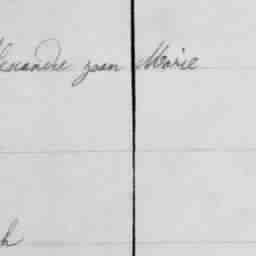 lexandre jean Marie
h